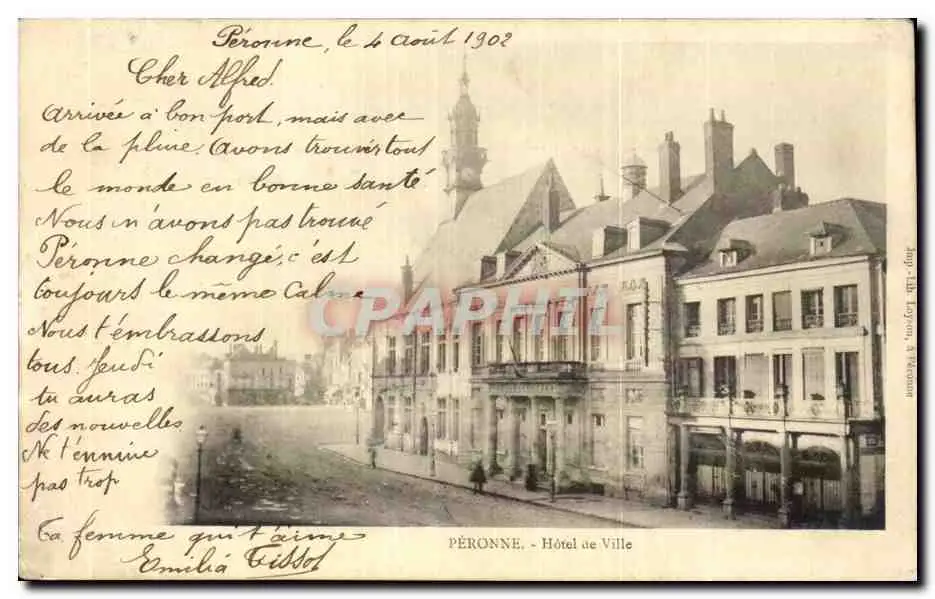 Péronne, le 4 Août 1902
Cher Alfred.
Arrivée à bon port, mais avec
de la pluie. Avons trouvés tout
le monde en bonne santé.
Nous n'avons pas trouvé
Péronne changé, c'est
toujours le même calme
Nous t'embrassons
tous. Jeudi
tu auras
des nouvelles
Ne t'ennuie
pas trop
Ta femme qui t'aime
Emilia Tissot
CPAPHIL
PÉRONNE. - Hôtel de Ville
Imp.-Lib. Loyson, à Péronne